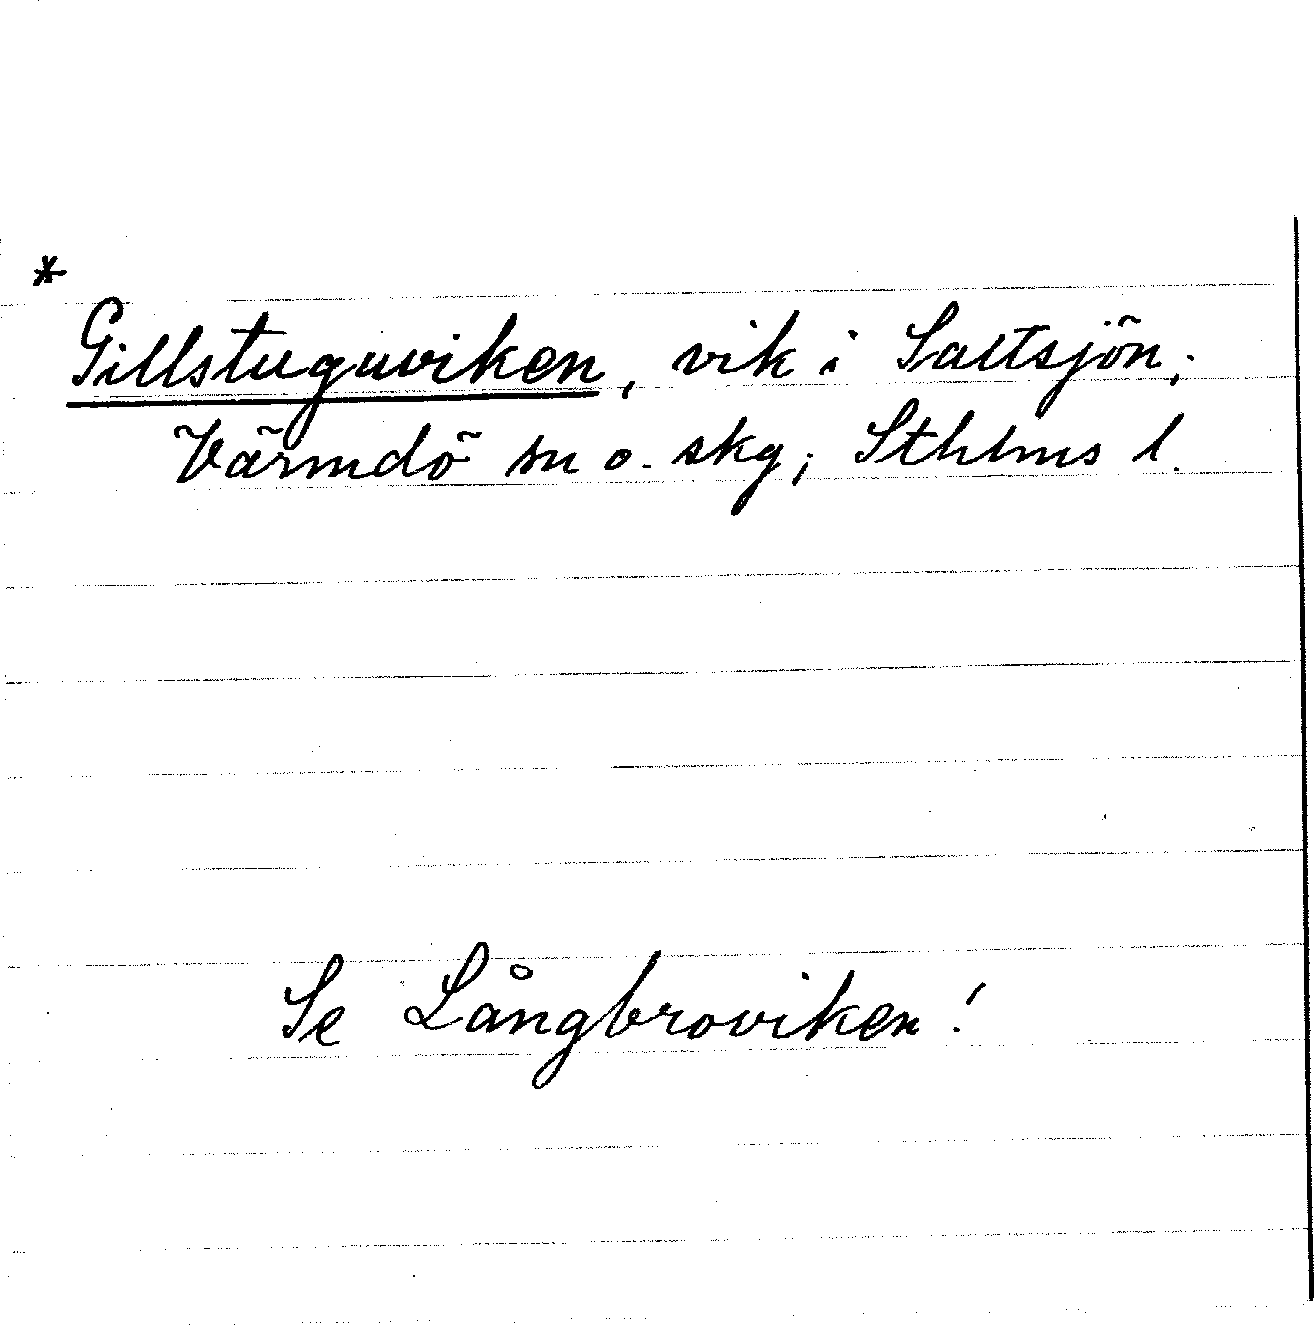 *
Gillstuguviken, vik i Saltsjön;
Värmdö sn o. skg; Sthlms l.
Se Långbroviken!